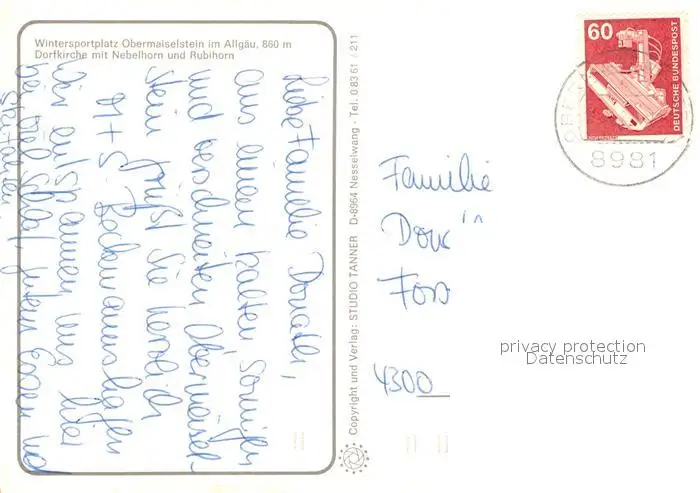 Wintersportplatz Obermaiselstein im Allgäu, 860 m
Dorfkirche mit Nebelhorn und Rubihorn
Liebe Familie
aus einem kalten sonnigen
und verschneiten Obermaisel-
stein grüßt Sie herzlich
M + S
Wir entspannen uns
bei viel Schlaf, gutem Essen und
Copyright und Verlag: STUDIO TANNER D-8964 Nesselwang · Tel. 0 83 61 / 211
60
DEUTSCHE BUNDESPOST
8981
Familie
4300
privacy protection
Datenschutz